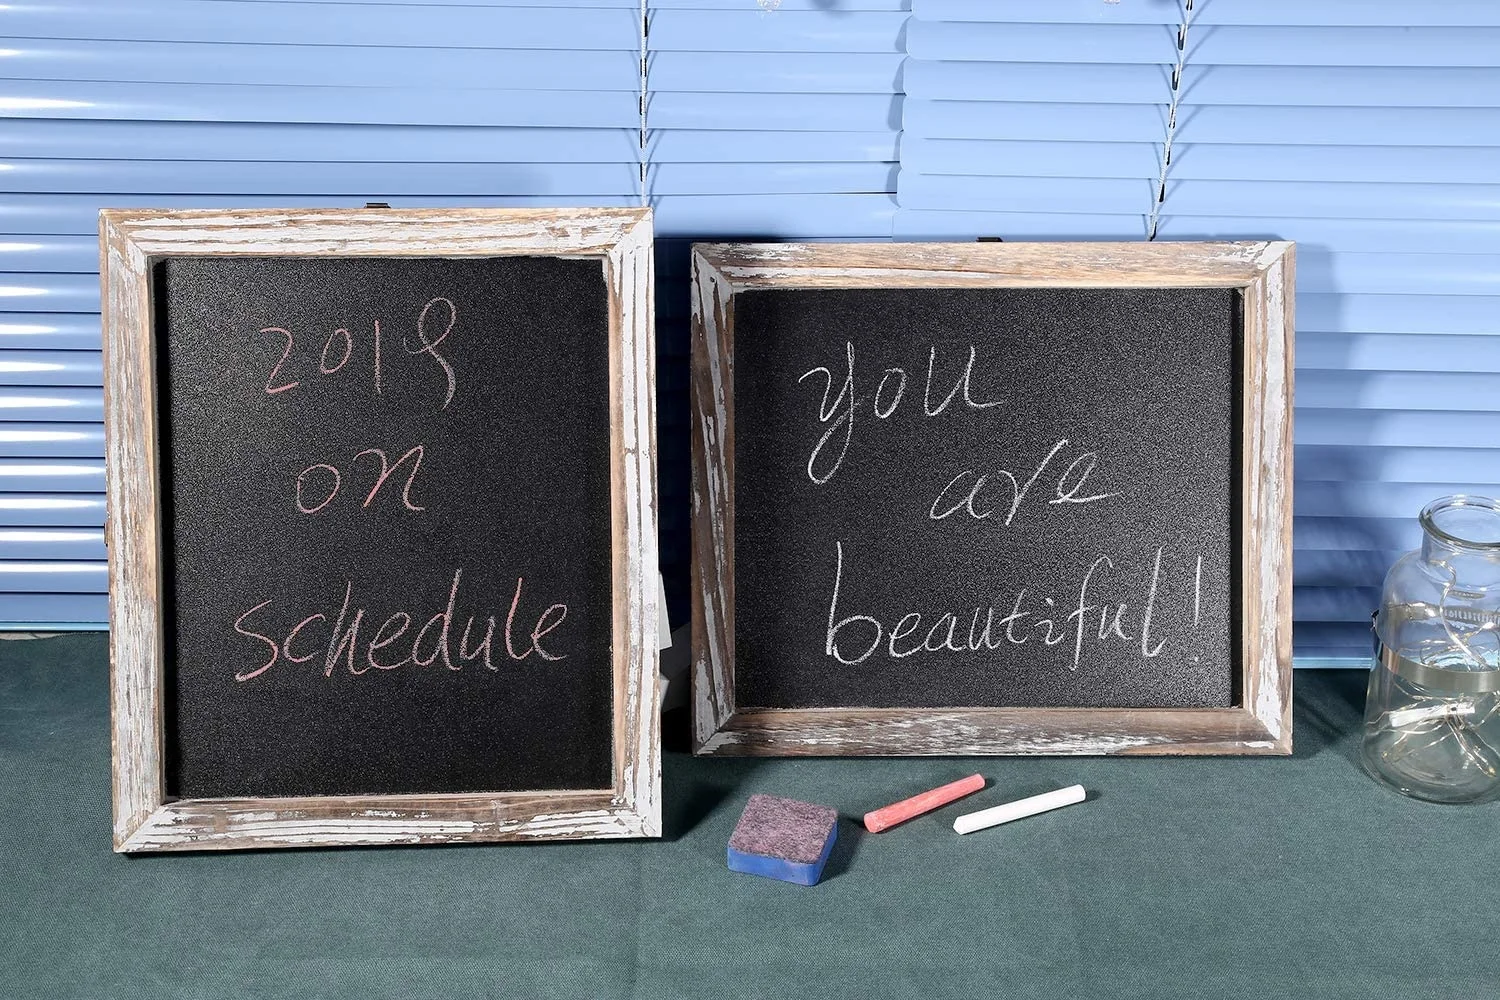 2019
on
schedule
you
are
beautiful!